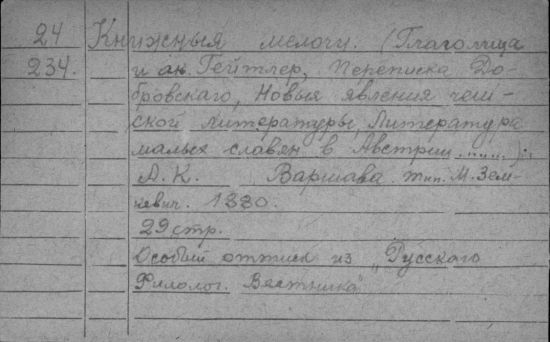 24 Книжныя мелочи. (Глаголица
234. и ак. Гейтлер, Переписка До-
бровскаго, Новыя явления чеш-
ской литературы, Литература
малых славян в Австрии......).
А. К. Варшава. тип. М. Зем-
кевич. 1880.
29 стр.
Особый оттиск из „Русскаго
Филолог. Вестника"